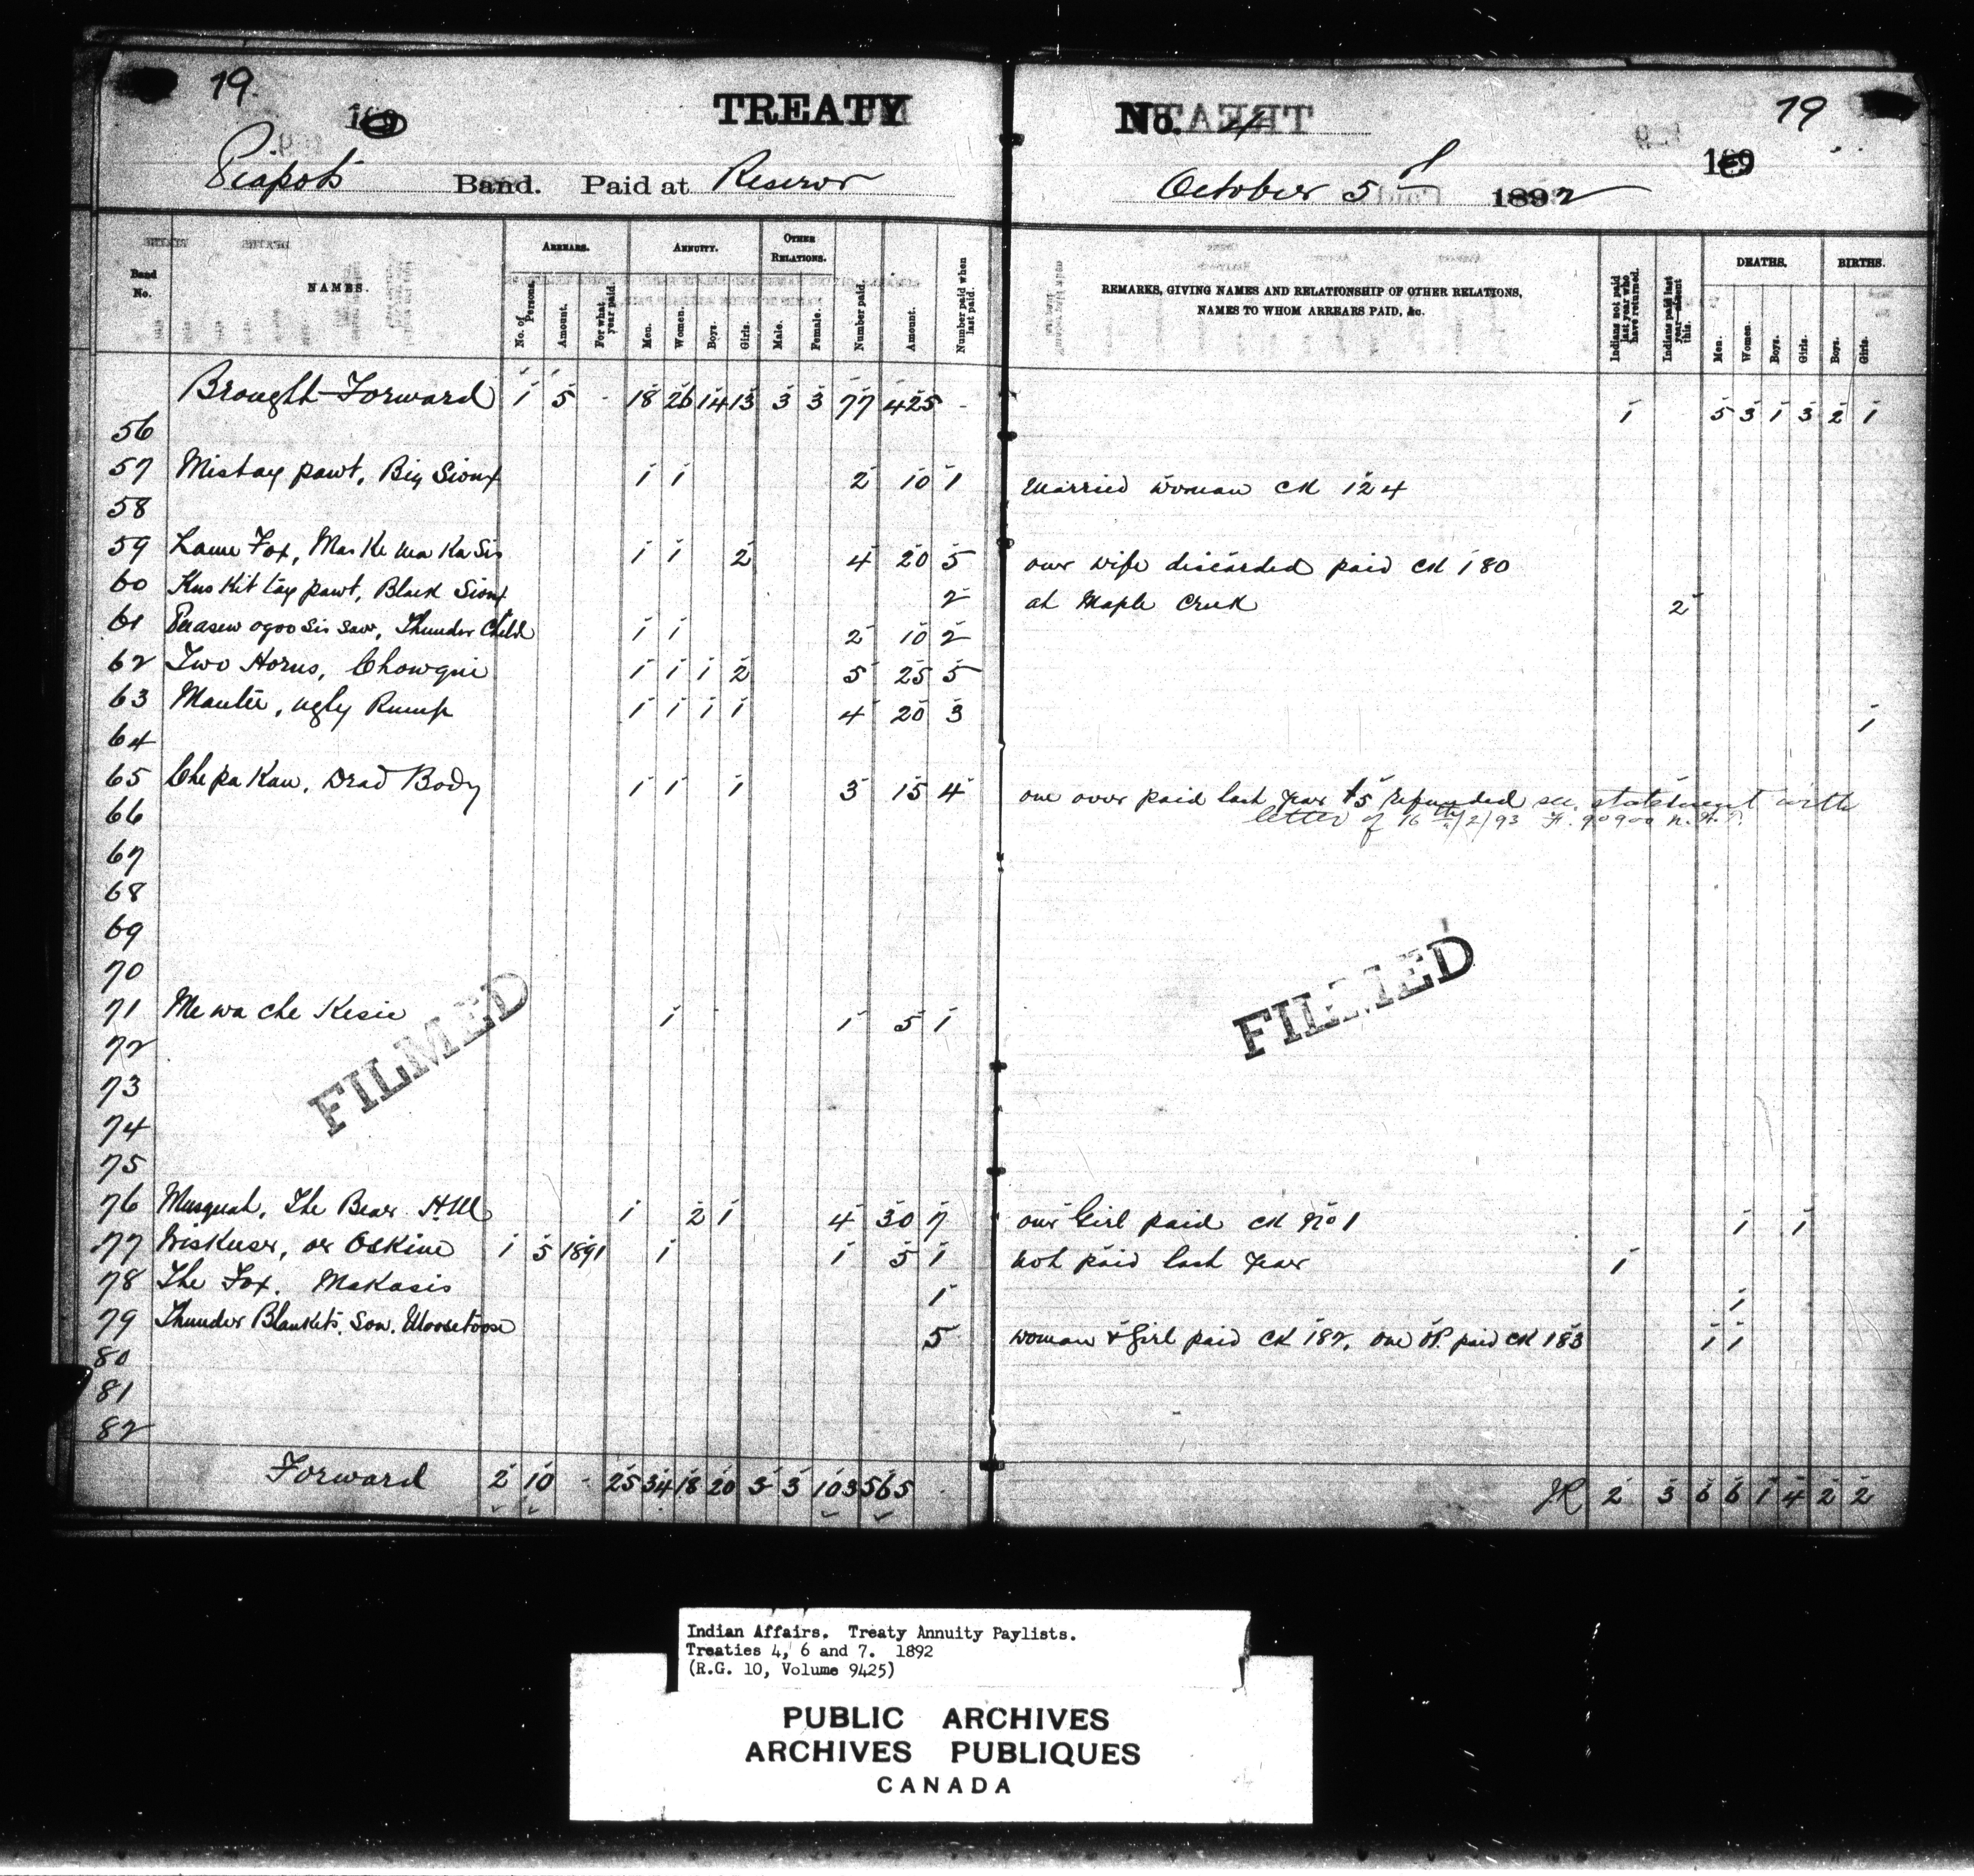 19.
TREATY No. 4
19
189
Piapots Band. Paid at Reserve October 5th 1892
189
Band No.
NAMES.
ARREARS.
No. of Persons.
Amount.
For what year paid.
ANNUITY.
Men.
Women.
Boys.
Girls.
OTHER RELATIONS.
Male.
Female.
Number paid.
Amount.
Number paid when last paid.
REMARKS, GIVING NAMES AND RELATIONSHIP OF OTHER RELATIONS, NAMES TO WHOM ARREARS PAID, &c.
Indians not paid last year who have returned.
Indians paid last year absent this.
DEATHS.
Men.
Women.
Boys.
Girls.
BIRTHS.
Boys.
Girls.
Brought Forward 1 5 - 18 26 14 13 3 3 77 425 - 1 5 3 1 3 2 1
56
57 Mistay pawt, Big Sioux 1 1 2 10 1 Married woman CK 124
58
59 Lame Fox, Mas Ke ma Ka Sis 1 1 2 4 20 5 one wife discarded paid CK 180
60 Kus Kit tay pawt, Black Sioux 2 at Maple Creek 2
61 Peasew ogoo sis saw, Thunder Child 1 1 2 10 2
62 Two Horns, Chowgue 1 1 1 2 5 25 5
63 Mantee, ugly Rump 1 1 1 1 4 20 3 1
64
65 Che pa Kaw, Dead Body 1 1 1 3 15 4 one over paid last year $5 refunded see statement with
66 letter of 16th/2/93 F. 90900 N.A.P.
67
68
69
70
71 Me wa che Kesie 1 1 5 1
72
73
74
75
FILMED
FILMED
76 Musquah, The Bear H.M 1 2 1 4 30 7 one Girl paid CK No 1 1 1
77 Wiskuser, or Oskine 1 5 1891 1 1 5 1 not paid last year 1
78 The Fox. Makasis 1 1
79 Thunder Blankets, Son, Moosetoose 5 woman & Girl paid CK 182, one OR. paid CK 183 1 1
80
81
82
Forward 2 10 - 25 34 18 20 3 3 103 565 - JR 2 3 6 6 1 4 2 2
Indian Affairs. Treaty Annuity Paylists.
Treaties 4, 6 and 7. 1892
(R.G. 10, Volume 9425)
PUBLIC ARCHIVES
ARCHIVES PUBLIQUES
CANADA